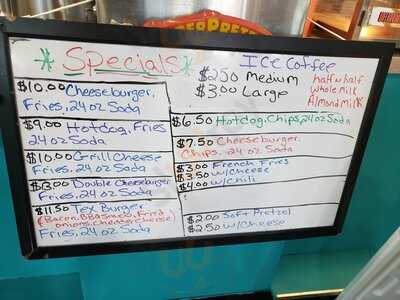 * Specials *
$10.00 Cheeseburger,
Fries, 24 oz Soda
$9.00 Hotdog, Fries
24 oz Soda
$10.00 Grill Cheese
Fries, 24 oz Soda
Double Cheeseburger
Fries, 24 oz Soda
$11.50 Tex Burger
(Bacon, BBQ Sauce, Fried
onions, Cheddar Cheese)
Fries, 24 oz Soda
Ice Coffee
$2.50 Medium
$3.00 Large
half n half
Whole Milk
Almond Milk
$6.50 Hotdog, Chips, 24 oz Soda
$7.50 Cheeseburger,
Chips, 24 oz Soda
$3.00 French Fries
$3.50 w/Cheese
$4.00 w/Chili
$2.00 Soft Pretzel
$2.50 w/Cheese